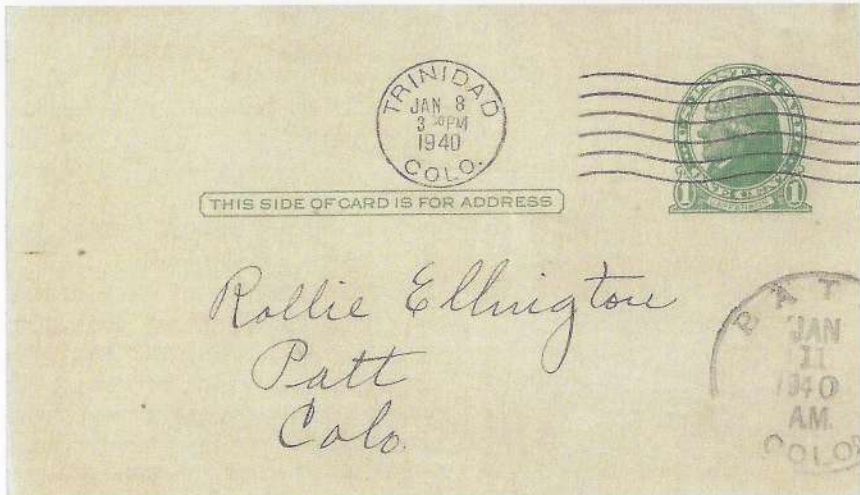 TRINIDAD
JAN 8
3 30 PM
1940
COLO.
THIS SIDE OF CARD IS FOR ADDRESS
1 1
Rollie Ellington
Patt
Colo.
PATT
JAN
11
1940
A.M.
COLO